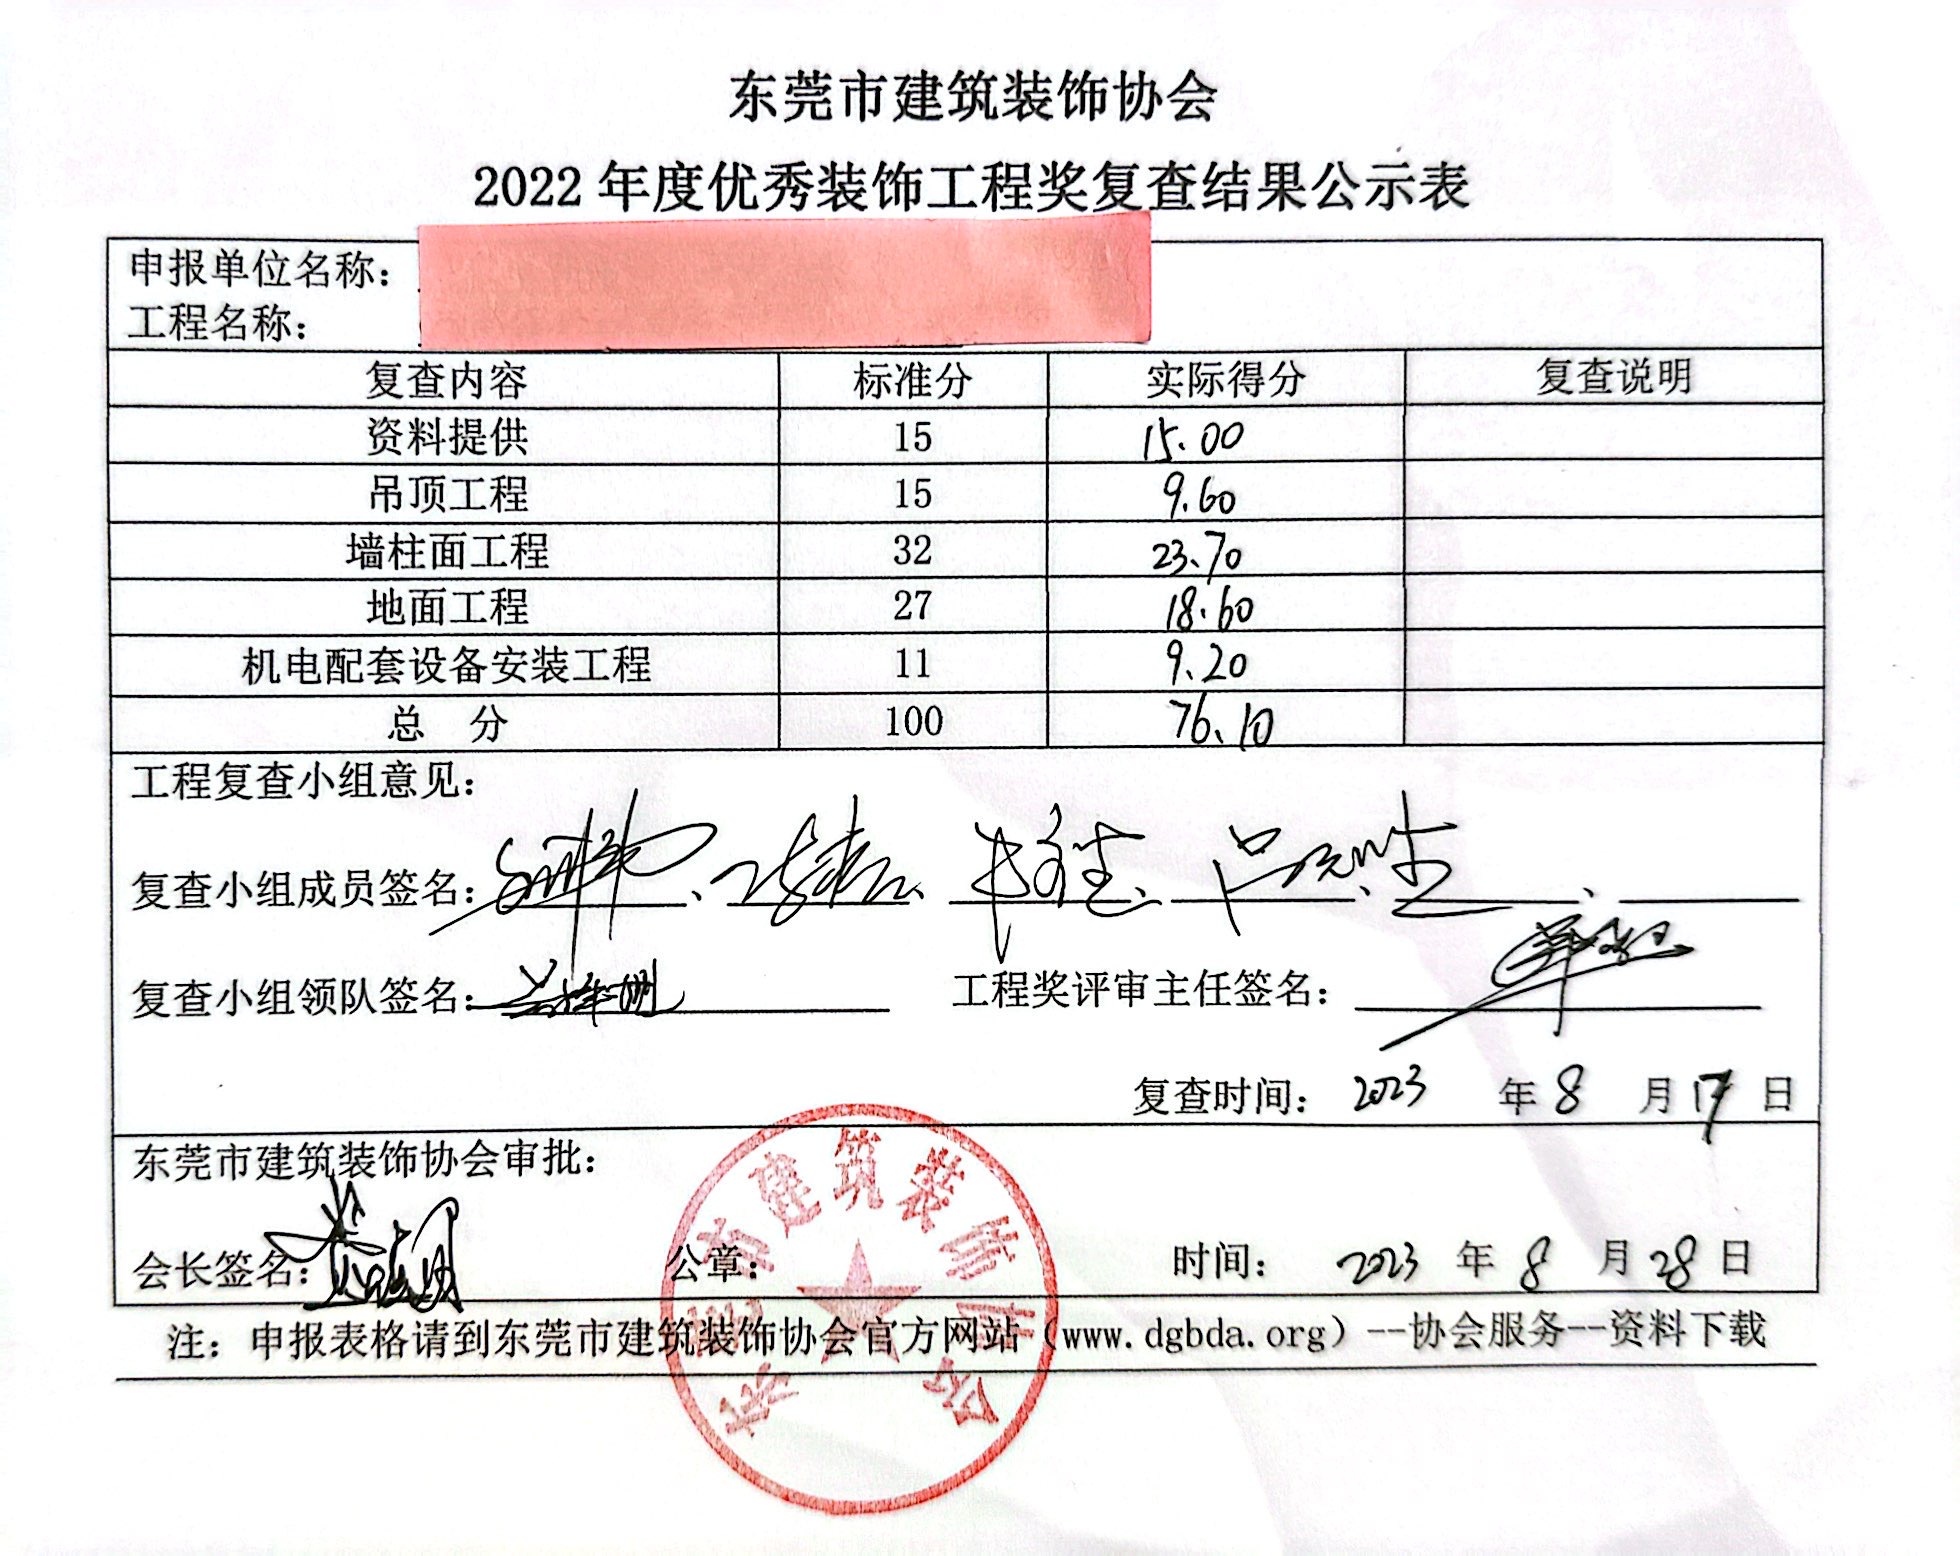 东莞市建筑装饰协会
2022 年度优秀装饰工程奖复查结果公示表
申报单位名称：
工程名称：
复查内容 标准分 实际得分 复查说明
资料提供 15 15.00
吊顶工程 15 9.60
墙柱面工程 32 23.70
地面工程 27 18.60
机电配套设备安装工程 11 9.20
总 分 100 76.10
工程复查小组意见：
复查小组成员签名：
复查小组领队签名： 工程奖评审主任签名：
复查时间： 2023 年 8 月 17 日
东莞市建筑装饰协会审批：
会长签名： 公章： 时间： 2023 年 8 月 28 日
注：申报表格请到东莞市建筑装饰协会官方网站（www.dgbda.org）--协会服务--资料下载
东莞市建筑装饰协会